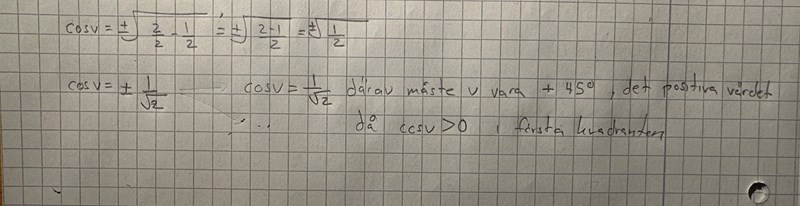 cosv = ±√(2/2 - 1/2) = ±√((2-1)/2) = ±√(1/2)
cosv = ± 1/√2 cosv = 1/√2 därav måste v vara + 45°, det positiva värdet
då cosv>0 i första kvadranten